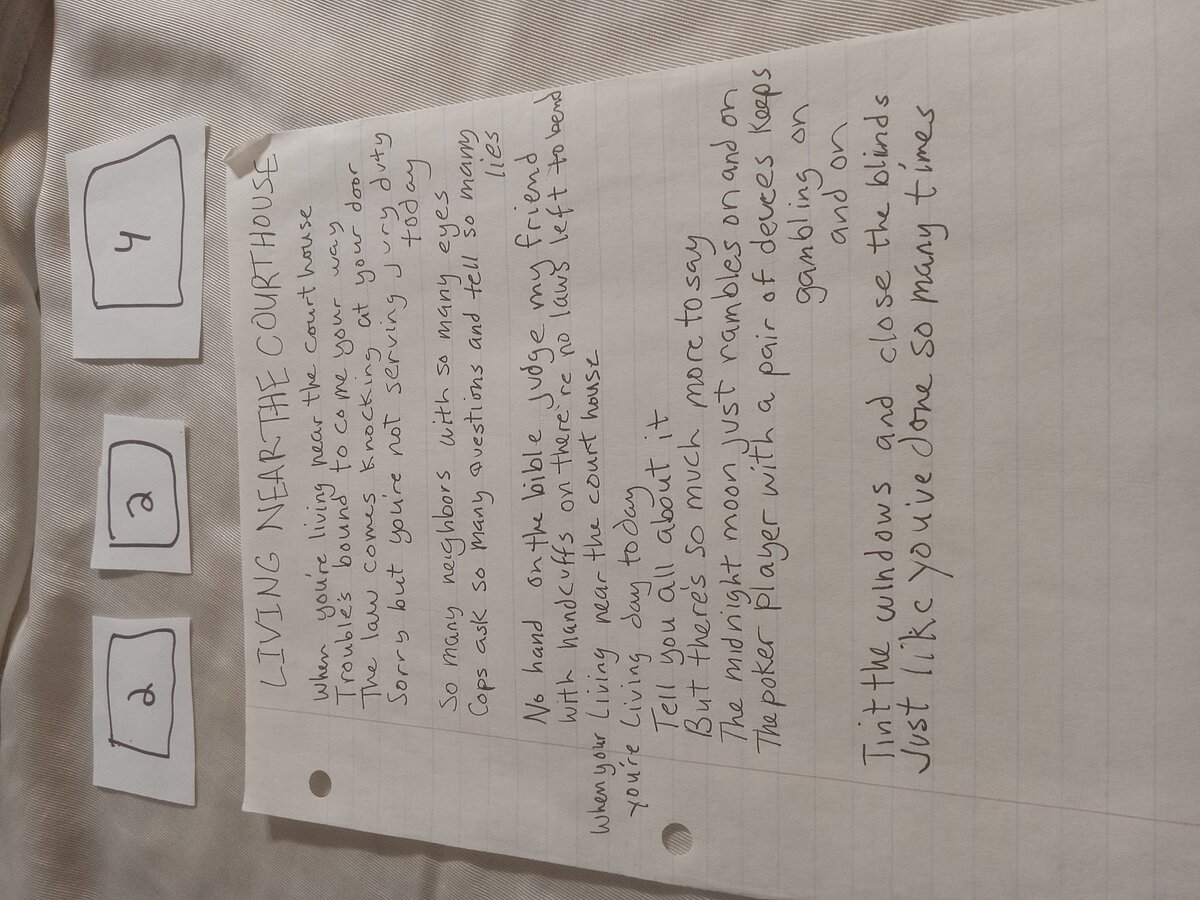 2
2
4
LIVING NEAR THE COURTHOUSE
When you're living near the court house
Trouble's bound to come your way
The law comes knocking at your door
Sorry but you're not serving jury duty
today
So many neighbors with so many eyes
Cops ask so many questions and tell so many
lies
No hand on the bible judge my friend
With handcuffs on there're no laws left to bend
When your Living near the court house
you're Living day today
Tell you all about it
But there's so much more to say
The midnight moon just rambles on and on
The poker player with a pair of deuces keeps
gambling on
and on
Tint the windows and close the blinds
Just like you've done so many times